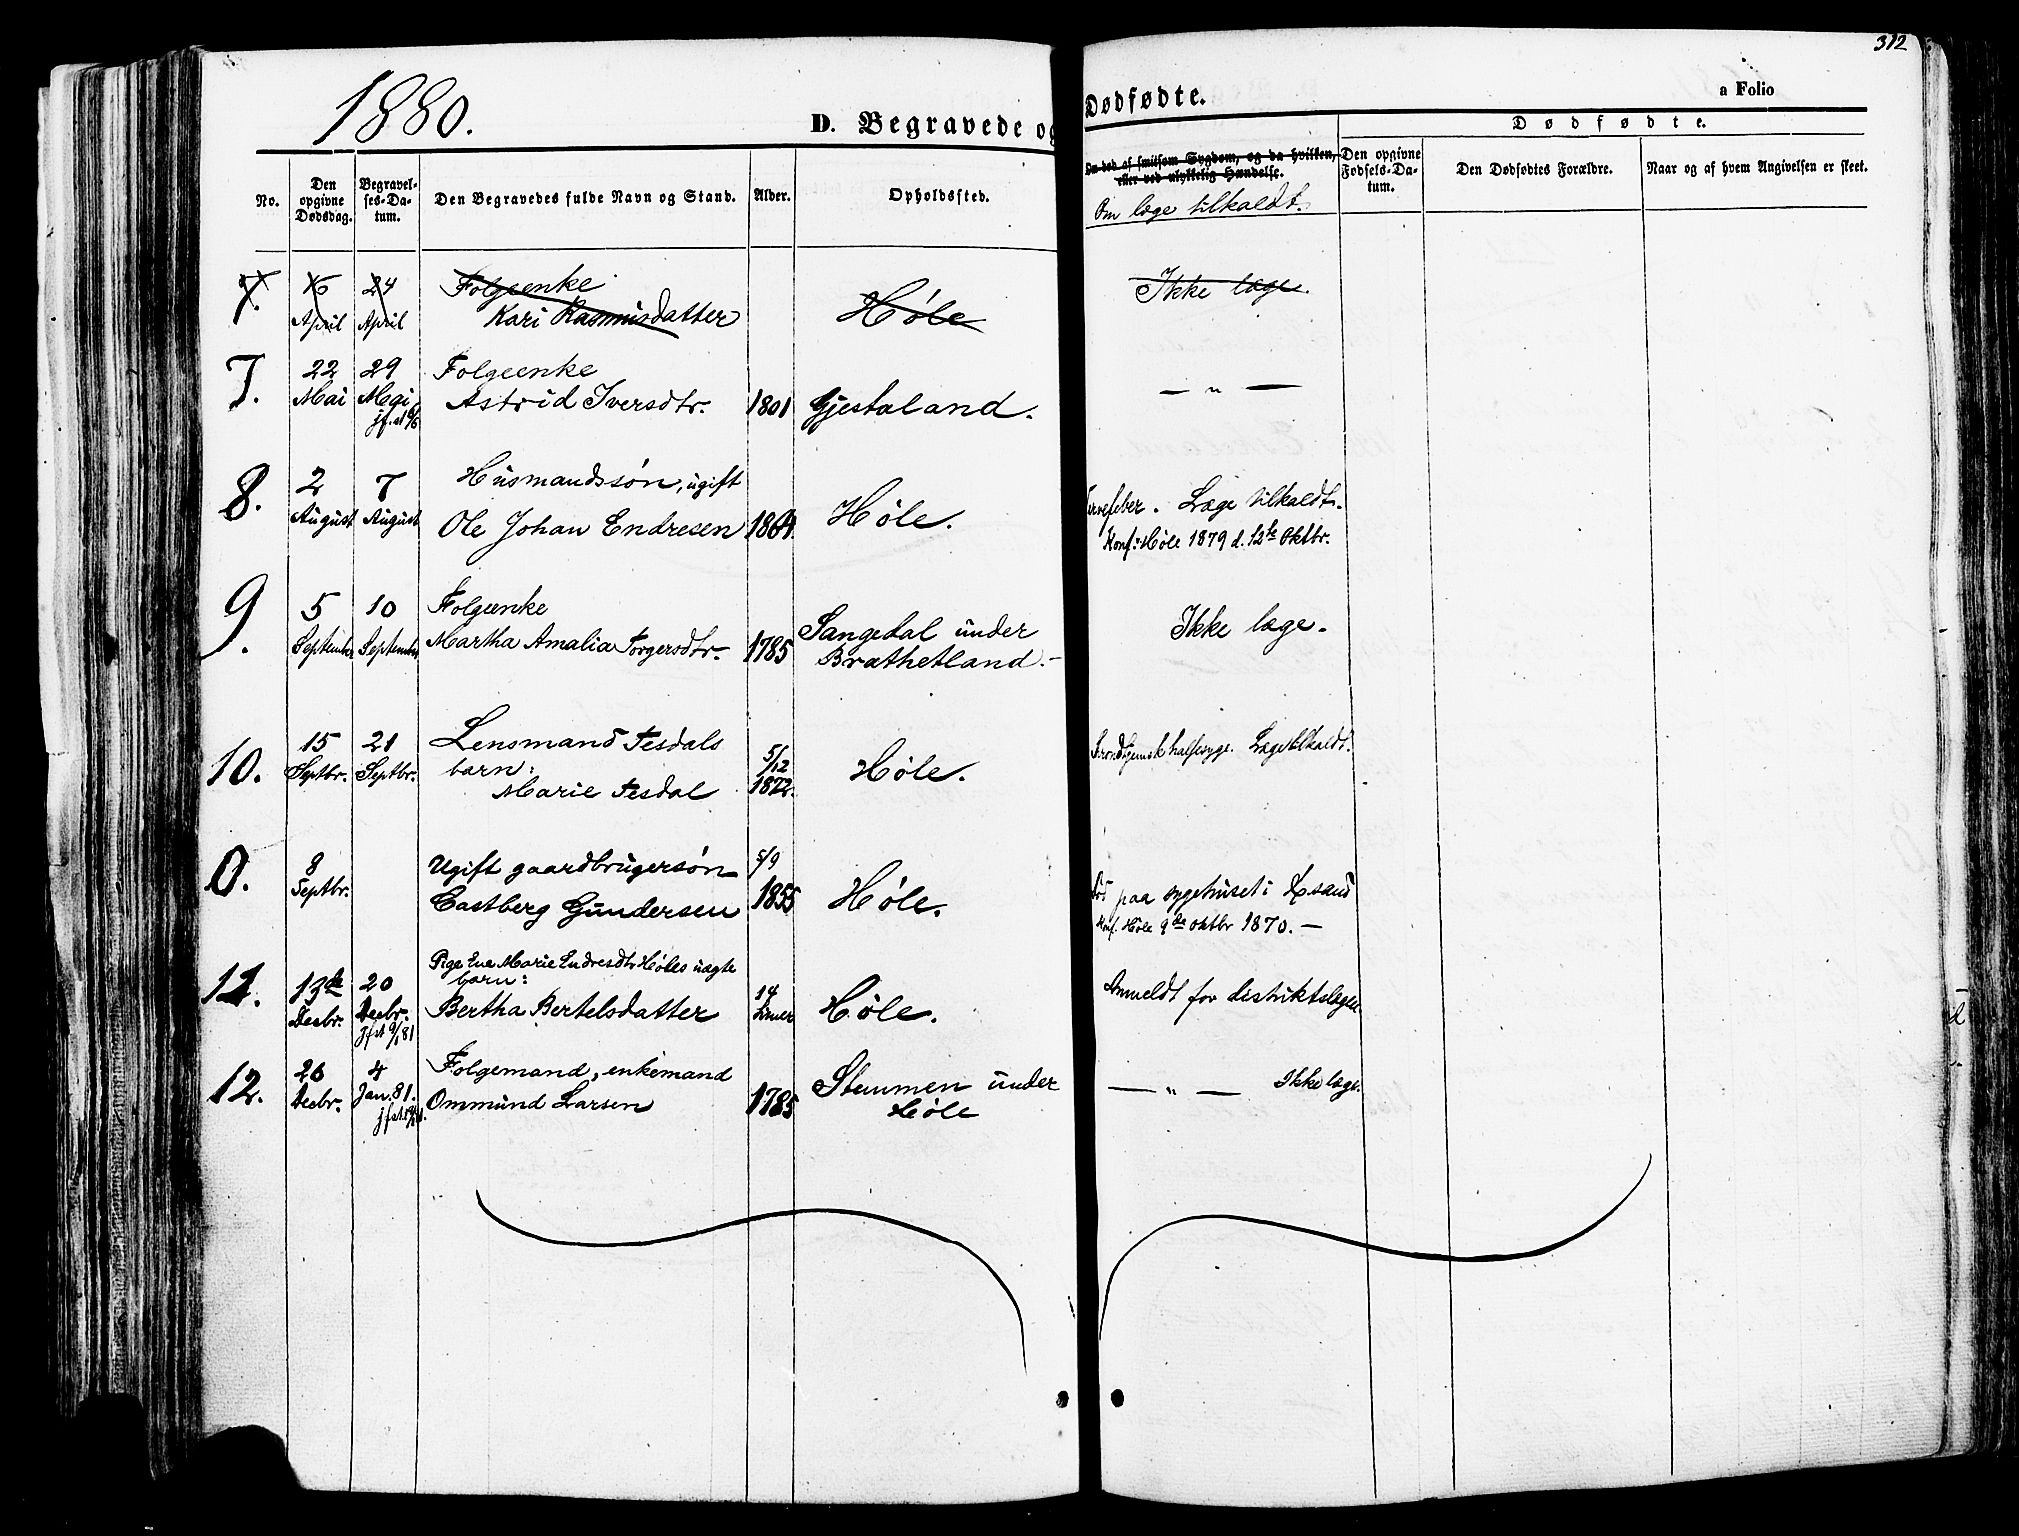 312
1880.
D. Begravede og
Dødfødte.
a Folio
No.
Den opgivne Dødsdag.
Begravelses-Datum.
Den Begravedes fulde Navn og Stand.
Alder.
Opholdssted.
Om død af smitsom Sygdom, og da hvilken,
eller ved ulykkelig Hændelse.
Om læge tilkaldt.
Dødfødte.
Den opgivne Fødsels-Datum.
Den Dødfødtes Forældre.
Naar og af hvem Angivelsen er skeet.
7. 16 24 Folgeenke
April April Kari Rasmusdatter Høle Ikke læge.
7. 22 29 Folgeenke
Mai Mai Astrid Iversdtr. 1801 Gjestaland. — " —
jf. st 6/6
8. 2 7 Husmandssøn, ugift
August August Ole Johan Endresen 1864 Høle. Nervefeber. Læge tilkaldt.
Konf. Høle 1879 d. 12te Oktbr.
9. 5 10 Folgeenke
September September Martha Amalia Torgersdtr. 1785 Sangedal under Ikke læge.
Brathetland.
10. 15 21 Lensmand Tesdals 5/12
Septbr. Septbr. barn: 1872. Høle. halsesyge. Læge tilkaldt.
Marie Tesdal
0. 8 Ugift gaardbrugersøn 5/9
Septbr. Castberg Gundersen 1855 Høle. Død paa sygehuset i Krsand
Konf. Høle 9de oktbr 1870. —
11. 13de 20 Pige Eva Marie Endresdtr Høles uægte
Decbr. Decbr. barn:
jfst 9/1 81 Bertha Bertelsdatter 14 timer Høle. Anmeldt for distriktslægen.
12. 26 4 Folgemand, enkemand
Decbr. Jan. 81. Ommund Larsen 1785 Stemmen under — " — Ikke læge.
jfst Høle